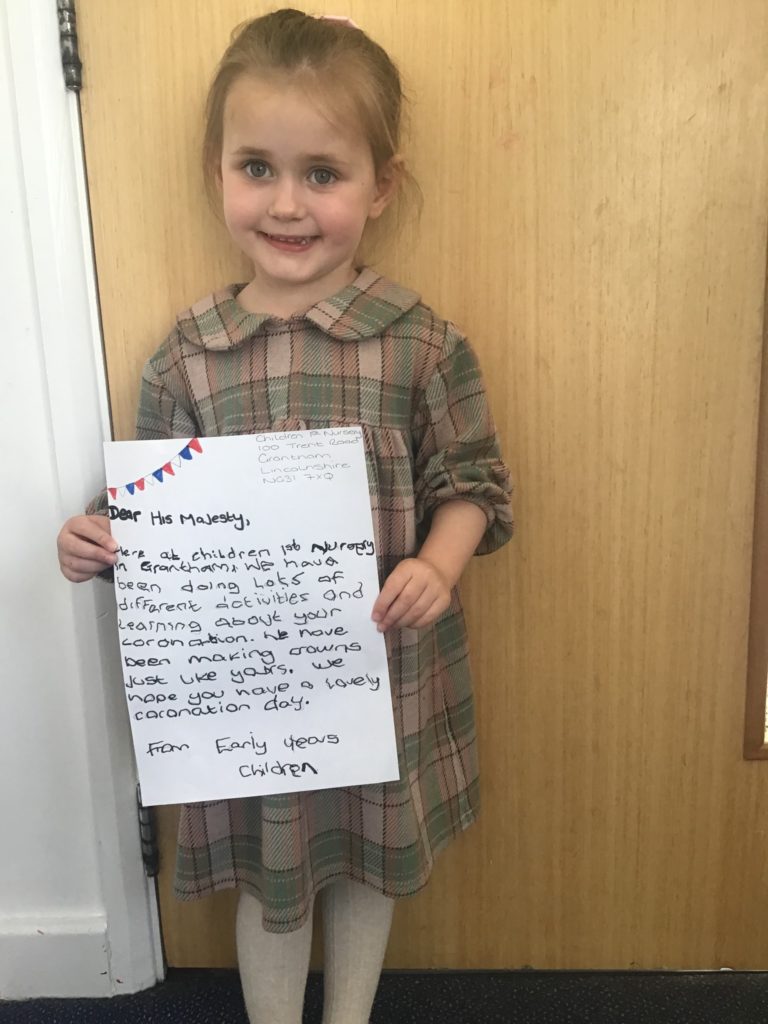 Children 1st Nursery
100 Trent Road
Grantham
Lincolnshire
NG31 7XQ
Dear His Majesty,
Here at children 1st Nursery
in Grantham, We have
been doing Lots of
different activities and
Learning about your
coronation. We have
been making crowns
just like yours. We
hope you have a lovely
coronation day.
From Early years
Children